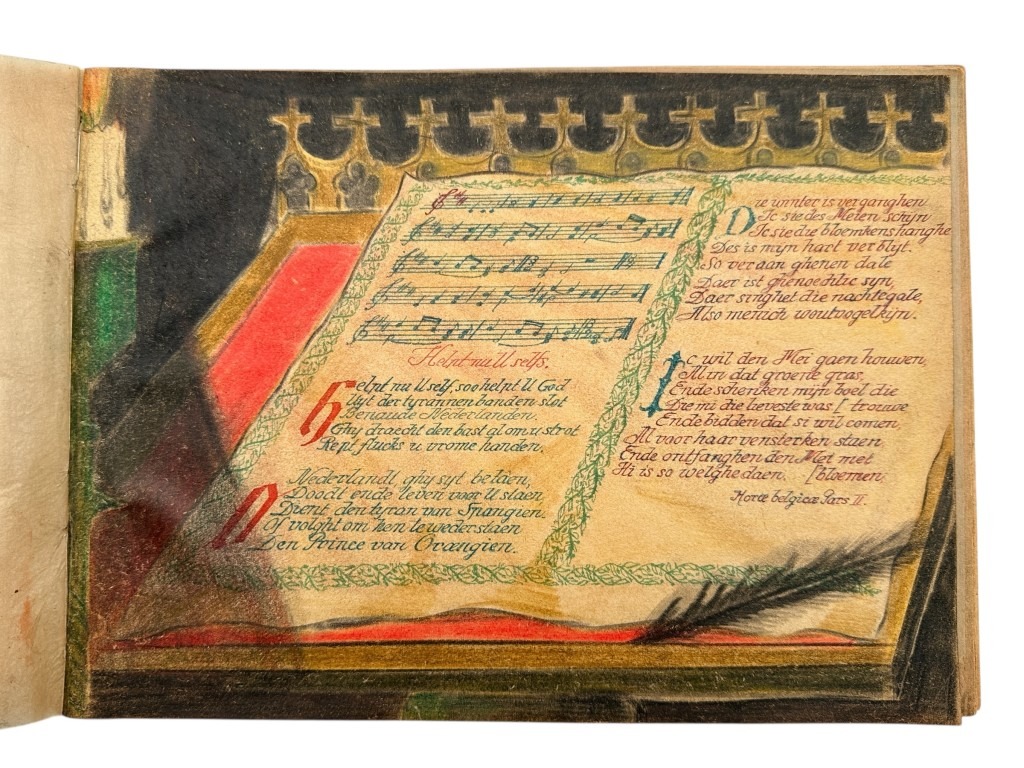 Helpt nu U selfs.
Helpt nu U self, soo helpt U God
Uyt der tyrannen banden slot
Benaude Nederlanden.
Ghy draecht den bast al om u strot
Rept flucks u vrome handen.
Nederlandt, ghy syt belaen,
Doodt ende leven voor U staen
Dient den tyran van Spangien.
Of volght om hen te wederstaen
Den Prince van Orangien.
Die winter is verganghen
Ic sie des Meien schijn
Ic sie die bloemkens hanghe
Des is mijn hart verblijt.
So ver aan ghenen dale
Daer ist ghenoechlic syn,
Daer singhet die nachtegale,
Also menich woutvogelkijn.
Ic wil den Mei gaen houwen,
Al in dat groene gras,
Ende schenken mijn boel die
Die mi die lieveste was [trouwe
Ende bidden dat si wil comen,
Al voor haar vensterken staen
Ende ontfanghen den Mei met
Hi is so welghedaen. [bloemen.
Horæ belgicæ Pars II.